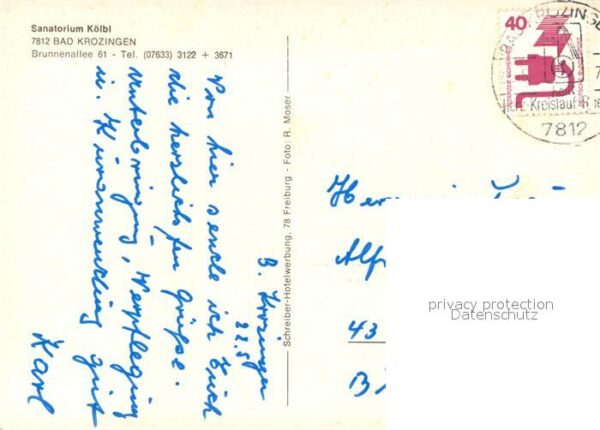 Sanatorium Kölbl
7812 BAD KROZINGEN
Brunnenallee 61 - Tel. (07633) 3122 + 3671
B. Krozingen
22.5
Von hier sende ich Euch
die herzlichsten Grüße.
Unterbringung, Verpflegung
u. Kuranwendung gut
Karl
Schreiber-Hotelwerbung, 78 Freiburg - Foto: R. Moser
40
DEUTSCHE BUNDESPOST
KROZINGE
Herz-Kreislauf
7812
Alf
43
B
privacy protection
Datenschutz